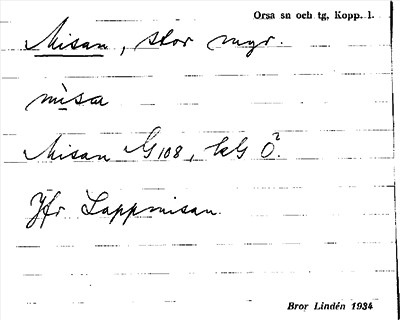 Orsa sn och tg, Kopp. l.
Misan, stor myr.
mìsa
Misan G108, lbl Ö².
Jfr Lappmisan.
Bror Lindén 1934